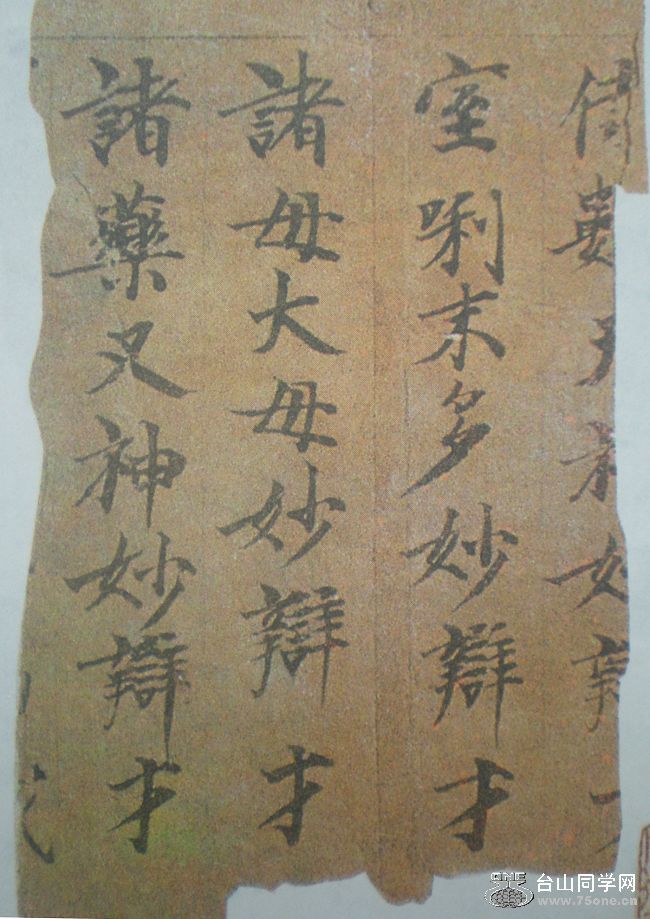 室唎末多妙辯才
諸母大母妙辯才
諸藥叉神妙辯才
台山同学网
www.75one.cn